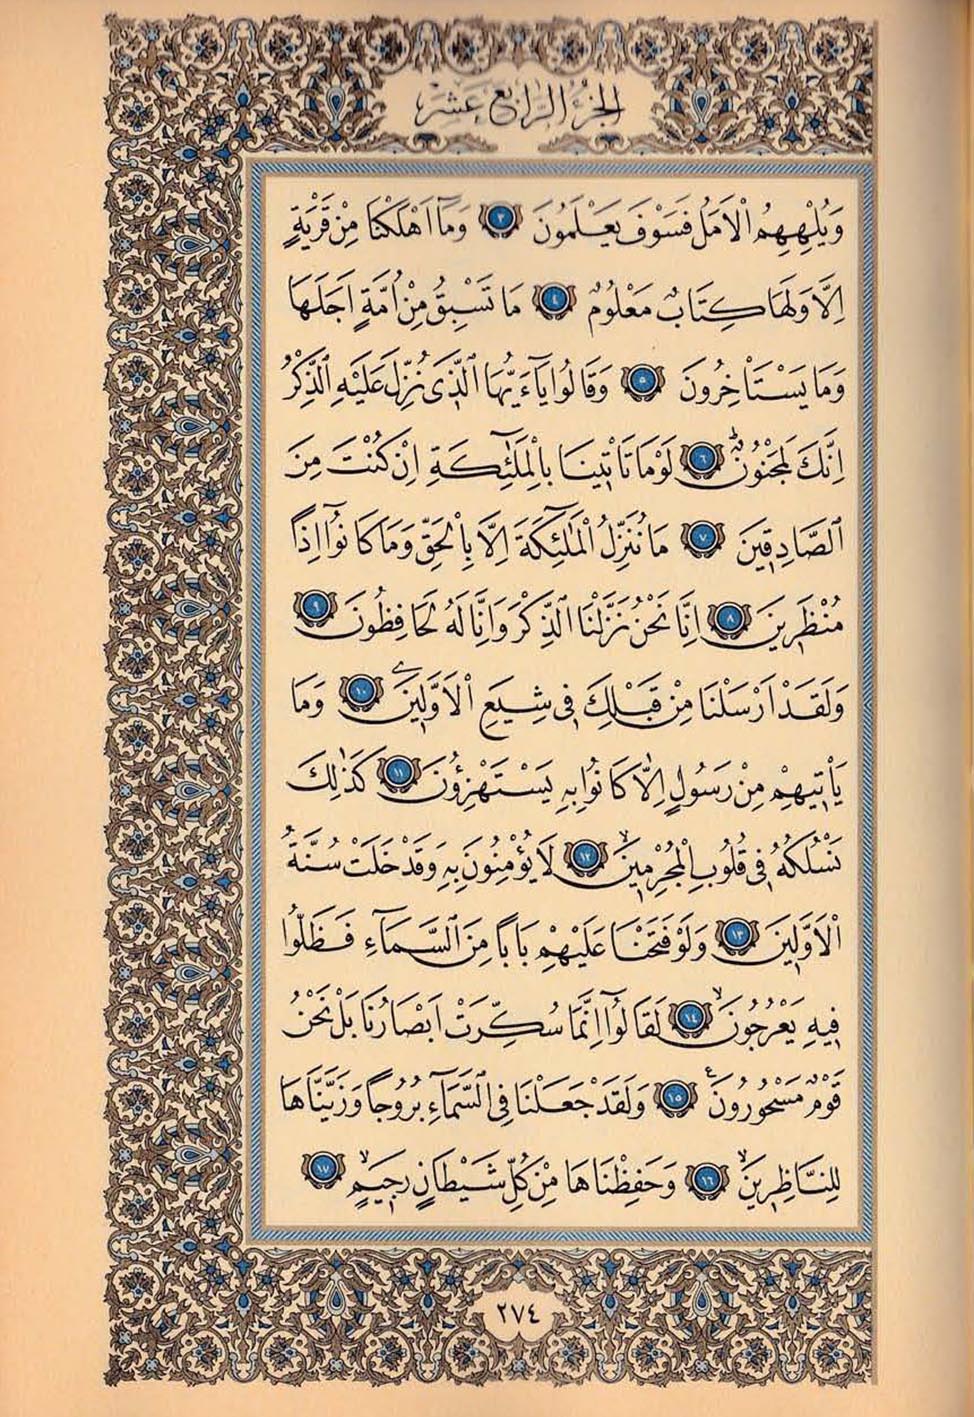 الجزء الرابع عشر
وَيُلْهِهِمُ الْاَمَلُ فَسَوْفَ يَعْلَمُونَ ﴿٣﴾ وَمَٓا اَهْلَكْنَا مِنْ قَرْيَةٍ
اِلَّا وَلَهَا كِتَابٌ مَعْلُومٌ ﴿٤﴾ مَا تَسْبِقُ مِنْ اُمَّةٍ اَجَلَهَا
وَمَا يَسْتَأْخِرُونَ ﴿٥﴾ وَقَالُوا يَٓا اَيُّهَا الَّذٖى نُزِّلَ عَلَيْهِ الذِّكْرُ
اِنَّكَ لَمَجْنُونٌؕ ﴿٦﴾ لَوْ مَا تَأْتٖينَا بِالْمَلٰٓئِكَةِ اِنْ كُنْتَ مِنَ
الصَّادِقٖينَ ﴿٧﴾ مَا نُنَزِّلُ الْمَلٰٓئِكَةَ اِلَّا بِالْحَقِّ وَمَا كَانُٓوا اِذًا
مُنْظَرٖينَ ﴿٨﴾ اِنَّا نَحْنُ نَزَّلْنَا الذِّكْرَ وَاِنَّا لَهُ لَحَافِظُونَ ﴿٩﴾
وَلَقَدْ اَرْسَلْنَا مِنْ قَبْلِكَ فٖى شِيَعِ الْاَوَّلٖينَ ﴿١٠﴾ وَمَا
يَأْتٖيهِمْ مِنْ رَسُولٍ اِلَّا كَانُوا بِهٖ يَسْتَهْزِؤُنَ ﴿١١﴾ كَذٰلِكَ
نَسْلُكُهُ فٖى قُلُوبِ الْمُجْرِمٖينَۙ ﴿١٢﴾ لَا يُؤْمِنُونَ بِهٖ وَقَدْ خَلَتْ سُنَّةُ
الْاَوَّلٖينَ ﴿١٣﴾ وَلَوْ فَتَحْنَا عَلَيْهِمْ بَابًا مِنَ السَّمَٓاءِ فَظَلُّوا
فٖيهِ يَعْرُجُونَۙ ﴿١٤﴾ لَقَالُٓوا اِنَّمَا سُكِّرَتْ اَبْصَارُنَا بَلْ نَحْنُ
قَوْمٌ مَسْحُورُونَ ﴿١٥﴾ وَلَقَدْ جَعَلْنَا فِى السَّمَٓاءِ بُرُوجًا وَزَيَّنَّاهَا
لِلنَّاظِرٖينَۙ ﴿١٦﴾ وَحَفِظْنَاهَا مِنْ كُلِّ شَيْطَانٍ رَجٖيمٍۙ ﴿١٧﴾
٢٧٤